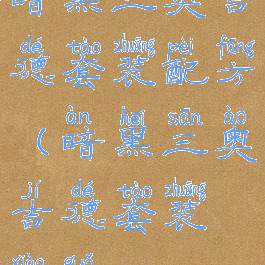 暗黑三奥吉
dé tào zhuāng pèi fāng
德套装配方
àn hēi sān ào
（暗黑三奥
jí dé tào zhuāng
吉德套装
xiào guǒ